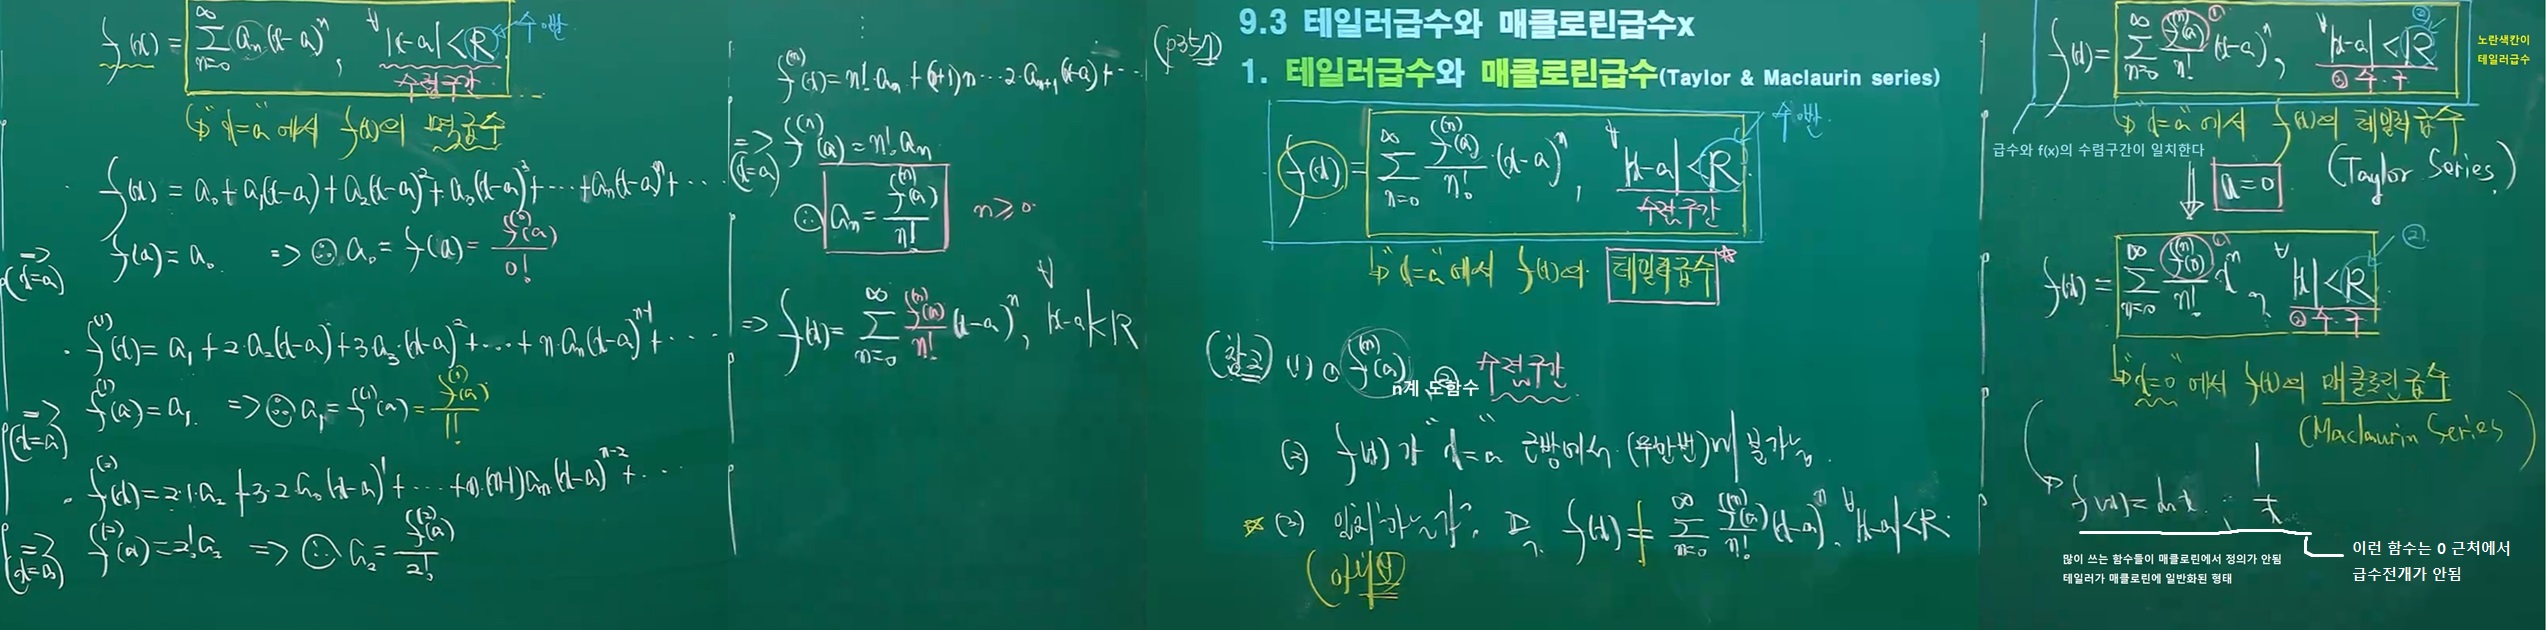 f(x) = ∑_{n=0}^{∞} a_n (x-a)^n, ∀|x-a| < R 수.반
수렴구간
↳ "x=a"에서 f(x)의 멱급수
· f(x) = a₀ + a₁(x-a) + a₂(x-a)² + a₃(x-a)³ + ··· + a_n(x-a)^n + ···
⇒ (x=a) f(a) = a₀ ⇒ ∴ a₀ = f(a) = f^{(0)}(a)/0!
· f^{(1)}(x) = a₁ + 2·a₂(x-a) + 3·a₃·(x-a)² + ··· + n·a_n(x-a)^{n-1} + ···
⇒ (x=a) f^{(1)}(a) = a₁ ⇒ ∴ a₁ = f^{(1)}(a) = f^{(1)}(a)/1!
· f^{(2)}(x) = 2·1·a₂ + 3·2·a₃(x-a)¹ + ··· + n·(n-1)a_n(x-a)^{n-2} + ···
⇒ (x=a) f^{(2)}(a) = 2!a₂ ⇒ ∴ a₂ = f^{(2)}(a)/2!
⋮
f^{(n)}(x) = n!·a_n + (n+1)n···2·a_{n+1}(x-a) + ···
⇒ (x=a) f^{(n)}(a) = n!a_n
∴ a_n = f^{(n)}(a)/n! n≥0
⇒ f(x) = ∑_{n=0}^{∞} f^{(n)}(a)/n! (x-a)^n, ∀|x-a| < R
(p357)
9.3 테일러급수와 매클로린급수x
1. 테일러급수와 매클로린급수(Taylor & Maclaurin series)
f(x) = ∑_{n=0}^{∞} f^{(n)}(a)/n! ·(x-a)^n, ∀|x-a| < R 수.반
수렴구간
↳ "x=a"에서 f(x)의 테일러급수
(참고) (1) ① f^{(n)}(a) ② 수렴구간
n계 도함수
(2) f(x)가 "x=a" 근방에서 (무한번) 미분가능.
(3) 일치하는가? f(x) = ∑_{n=0}^{∞} f^{(n)}(a)/n! (x-a)^n, ∀|x-a| < R
f(x) = ∑_{n=0}^{∞} f^{(n)}(a)/n! ① (x-a)^n, ∀|x-a| < R ②
② 수.구
노란색칸이
테일러급수
↳ "x=a"에서 f(x)의 테일러급수
(Taylor Series)
급수와 f(x)의 수렴구간이 일치한다
a=0
f(x) = ∑_{n=0}^{∞} f^{(n)}(0)/n! ① x^n, ∀|x| < R ②
② 수.구
↳ "x=0"에서 f(x)의 매클로린급수
(Maclaurin Series)
f(x) = ln x, 1/x
많이 쓰는 함수들이 매클로린에서 정의가 안됨
테일러가 매클로린에 일반화된 형태
이런 함수는 0 근처에서
급수전개가 안됨